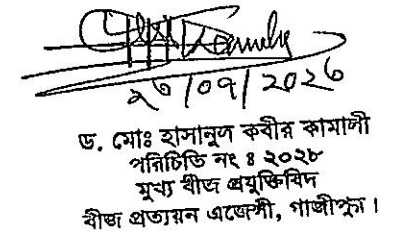 ২৩/০৭/২০২৩
ড. মোঃ হাসানুল কবীর কামালী
পরিচিতি নং ঃ ২০২৮
মুখ্য বীজ প্রযুক্তিবিদ
বীজ প্রত্যয়ন এজেন্সী, গাজীপুর।